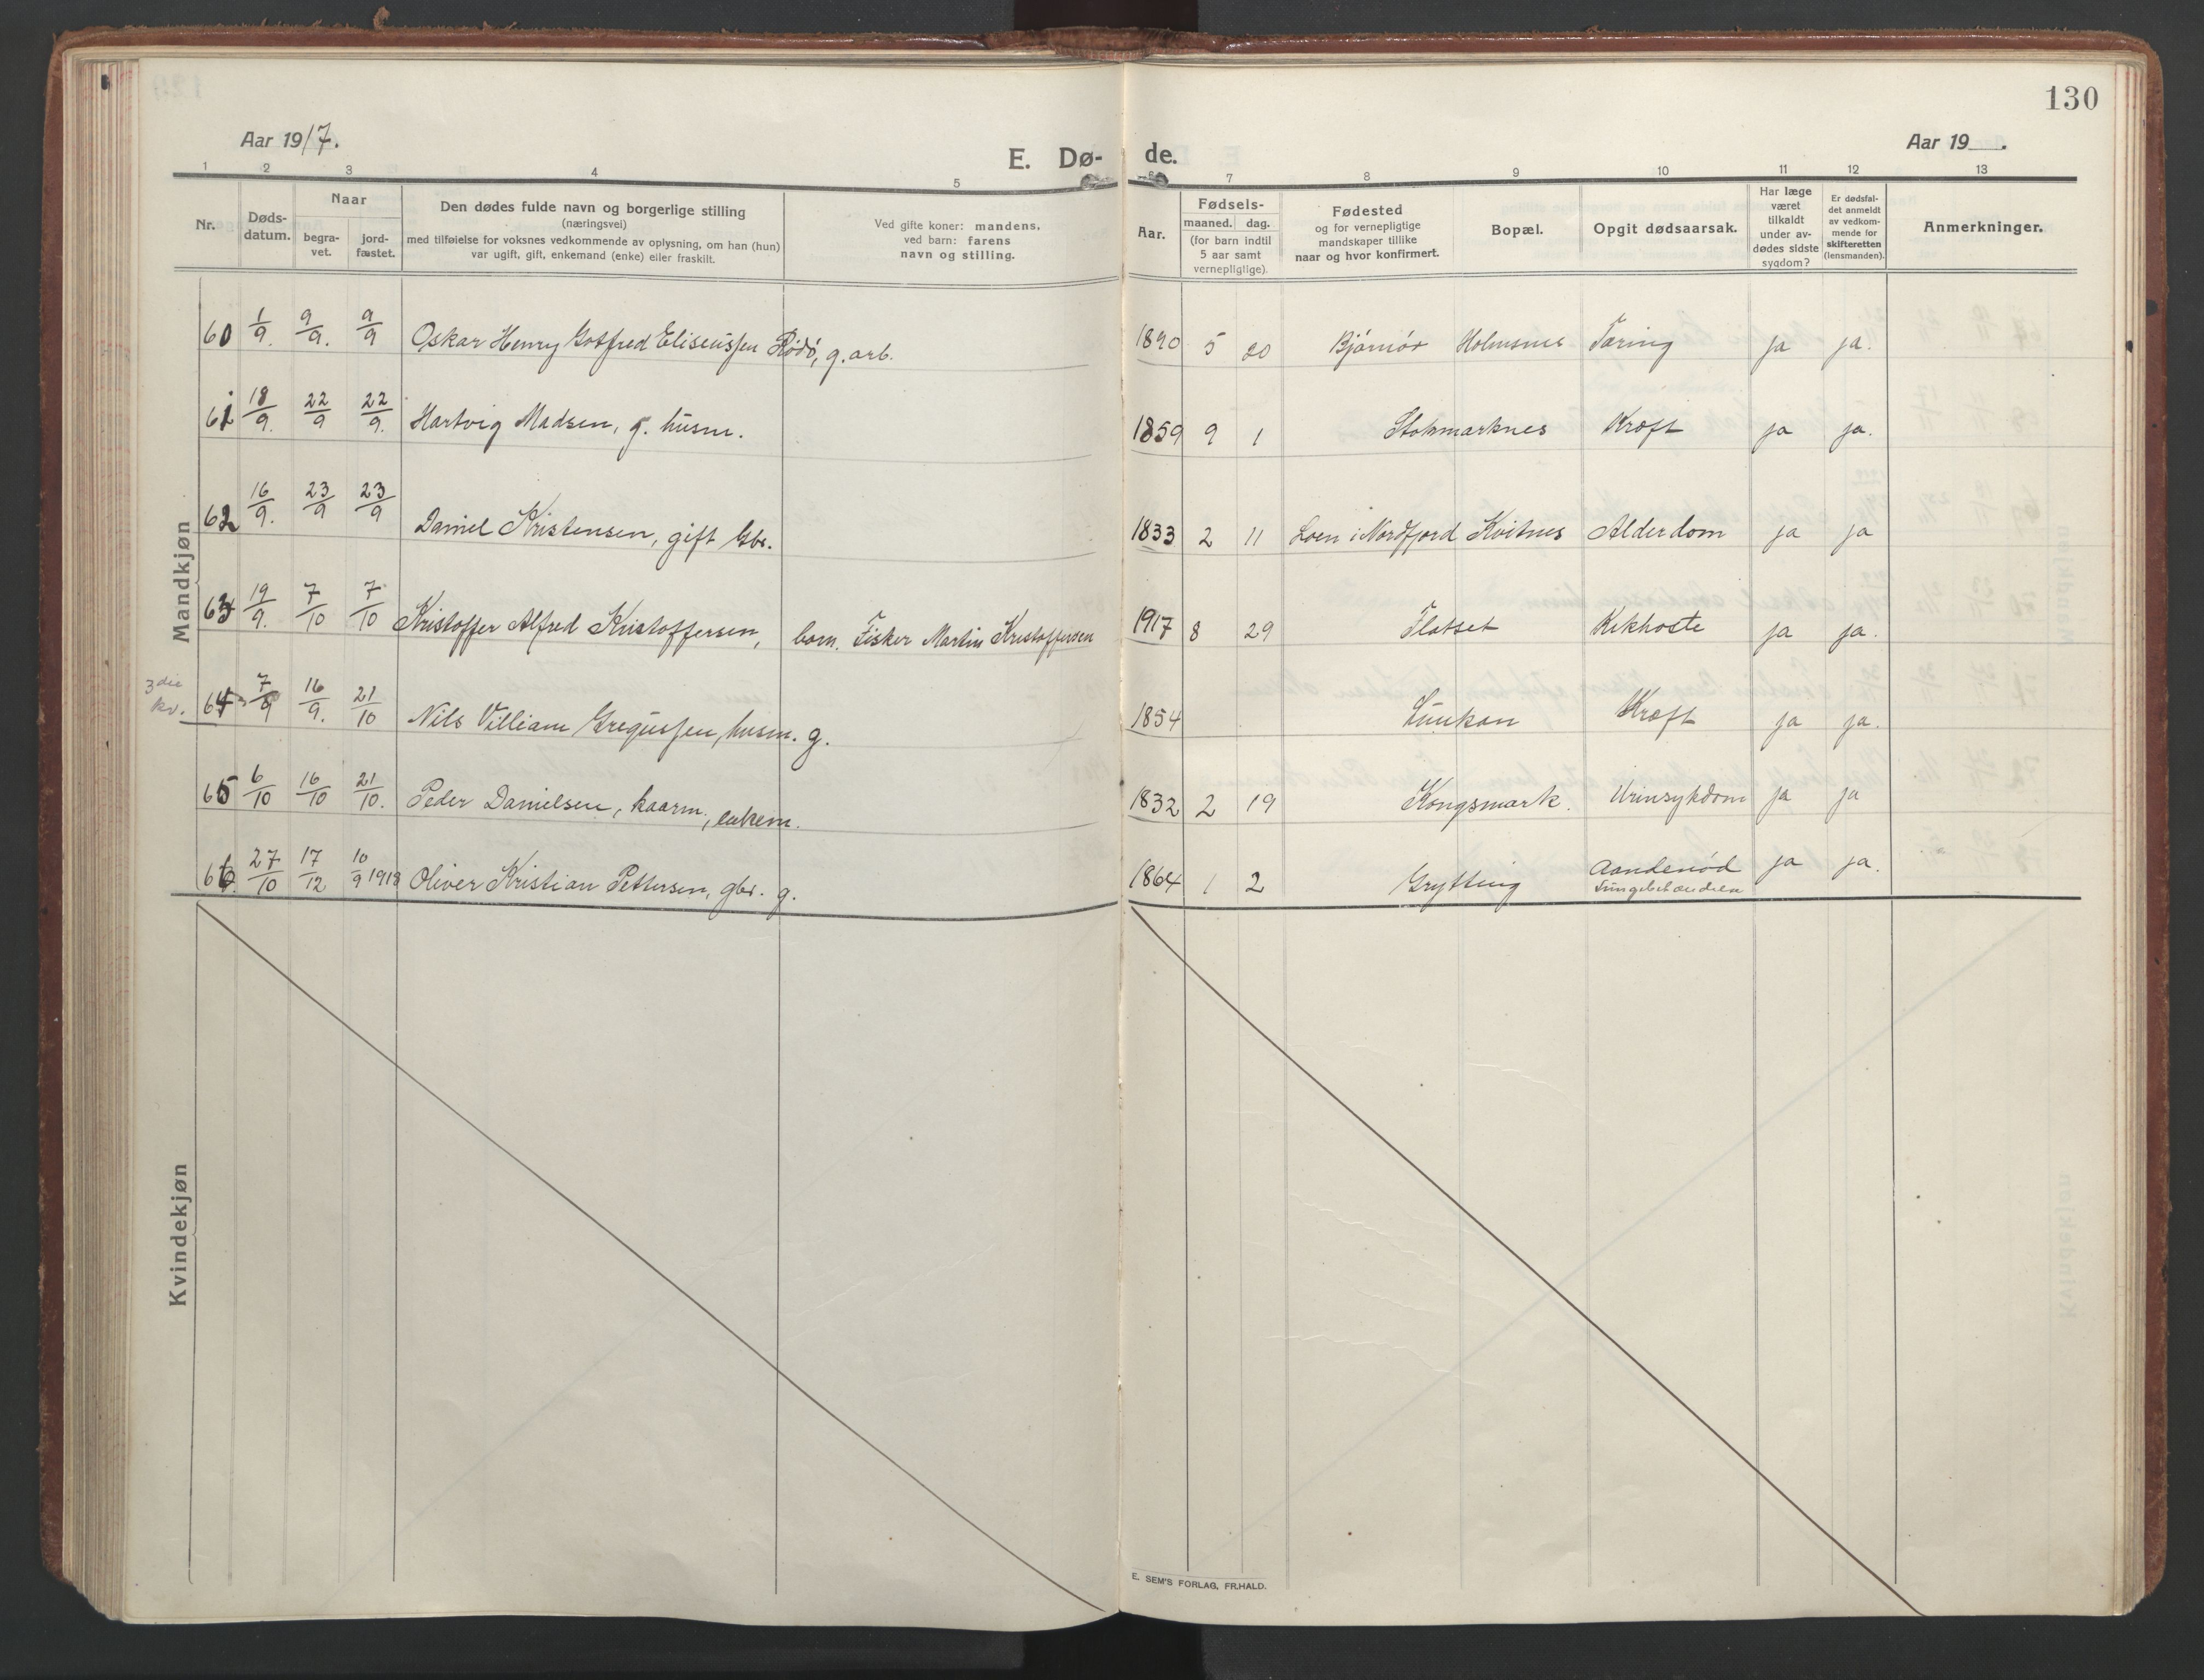 130
Aar 1917.
E. Dø- de.
Aar 19 .
1 2 3 4 5 6 7 8 9 10 11 12 13
Nr.
Døds-
datum.
Naar
begra-
vet.
jord-
fæstet.
Den dødes fulde navn og borgerlige stilling
(næringsvei)
med tilføielse for voksnes vedkommende av oplysning, om han (hun)
var ugift, gift, enkemand (enke) eller fraskilt.
Ved gifte koner: mandens,
ved barn: farens
navn og stilling.
Aar.
Fødsels-
maaned. dag.
(for barn indtil
5 aar samt
vernepligtige).
Fødested
og for vernepligtige
mandskaper tillike
naar og hvor konfirmert.
Bopæl.
Opgit dødsaarsak.
Har læge
været
tilkaldt
under av-
dødes sidste
sygdom?
Er dødsfal-
det anmeldt
av vedkom-
mende for
skifteretten
(lensmanden).
Anmerkninger.
Mandkjøn
60 1/9. 9/9. 9/9 Oskar Henry Gotfred Eliseussen Rödö, g. arb. 1890 5 20 Bjørnør Holmsnes Tæring ja ja.
61 18/9. 22/9 22/9. Hartvig Madsen, g. husm. 1859 9 1 Stokmarknes Kræft ja ja.
62 16/9. 23/9 23/9 Daniel Kristensen, gift Gbr. 1833 2 11 Loen i Nordfjord Kvitnes Alderdom ja ja
63 19/9. 7/10 7/10 Kristoffer Alfred Kristoffersen, barn. Fisker Martin Kristoffersen 1917 8 29 Flatset Kikhoste ja ja.
3die
kv.
64 7/9 16/9. 21/10 Nils Villiam Gregussen, husm. g. 1854 Lunkan Kræft ja ja.
65 6/10 16/10 21/10. Peder Danielsen, kaarm., enkem. 1832 2 19 Kongsmark. Urinsykdom ja ja
66. 27/10 17/12 10/9 1918 Oliver Kristian Pettersen, gbr. g. 1864 1 2 Grytting Aandenød ja ja.
Kvindekjøn
E. SEM'S FORLAG, FR.HALD.